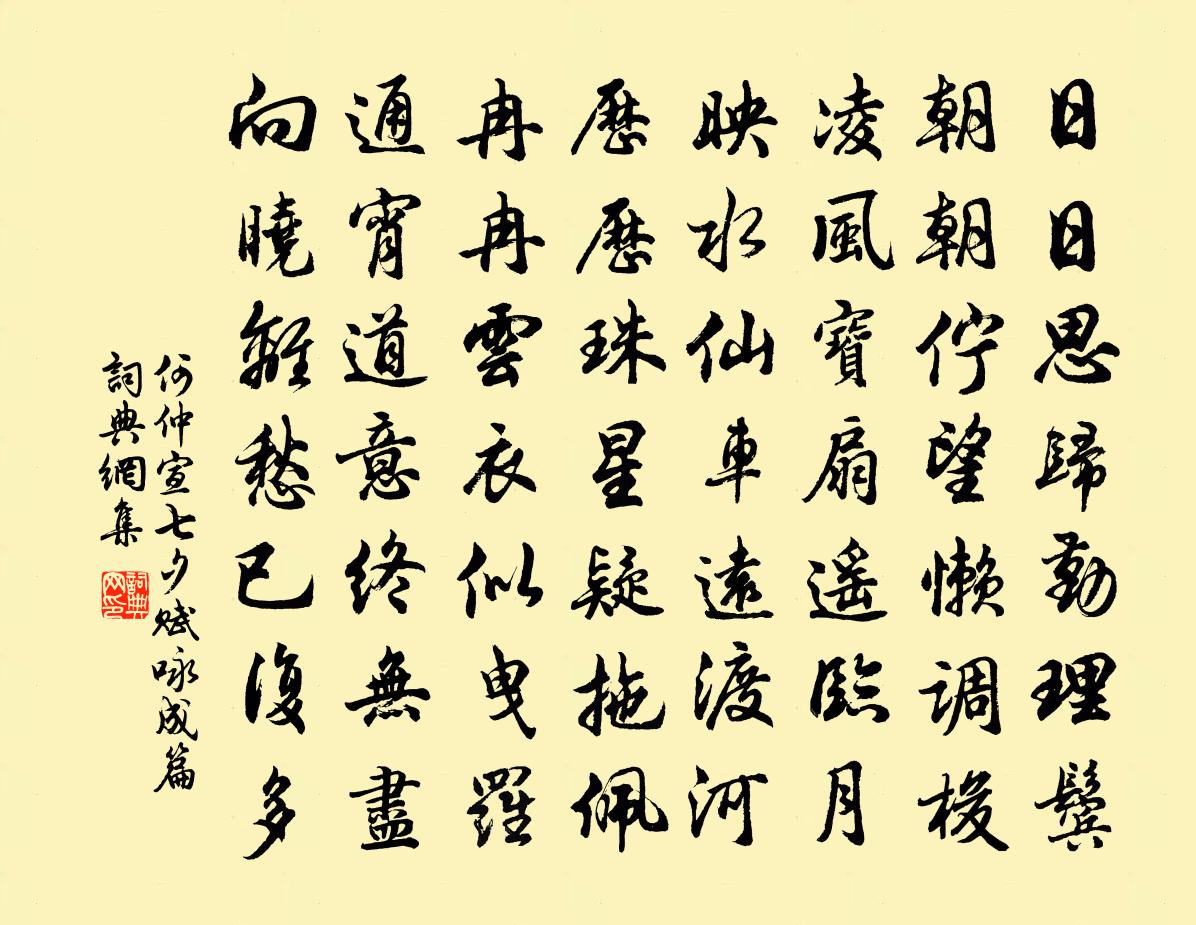 日日思歸勤理鬢
朝朝佇望懶調梭
凌風寶扇遥臨月
映水仙車遠渡河
歷歷珠星疑拖佩
冉冉雲衣似曳羅
通宵道意終無盡
向曉離愁已復多
何仲宣七夕賦咏成篇
詞典網集
詞典网印